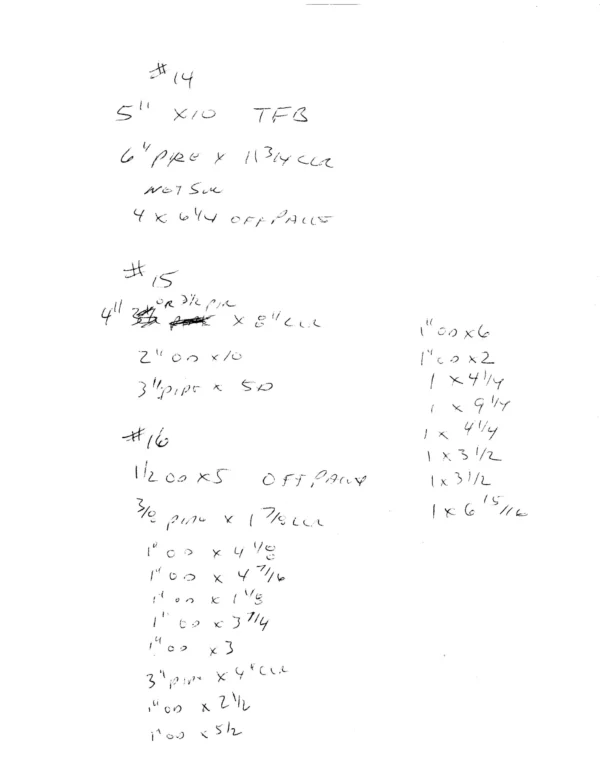 #14
5" x10 TFB
6" PIPE x 11 3/4 CLR
NOT SUR
4 x 6 1/4 OFF
#15
4" OR 3 1/2 PIPE x 8" CLR
2" OD x 10
3" PIPE x 5 D
#16
1 1/2 OD x5 OFF
3/8 PIPE x 1 7/8 CLR
1" OD x 4 1/8
1" OD x 4 7/16
1" OD x 1 1/8
1" OD x 3 7/4
1" OD x 3
3" PIPE x 4" CLR
1" OD x 2 1/2
1" OD x 5/2
1" OD x 6
1" OD x 2
1 x 4 1/4
1 x 9 1/4
1 x 4 1/4
1 x 3 1/2
1 x 3 1/2
1 x 6 15/16